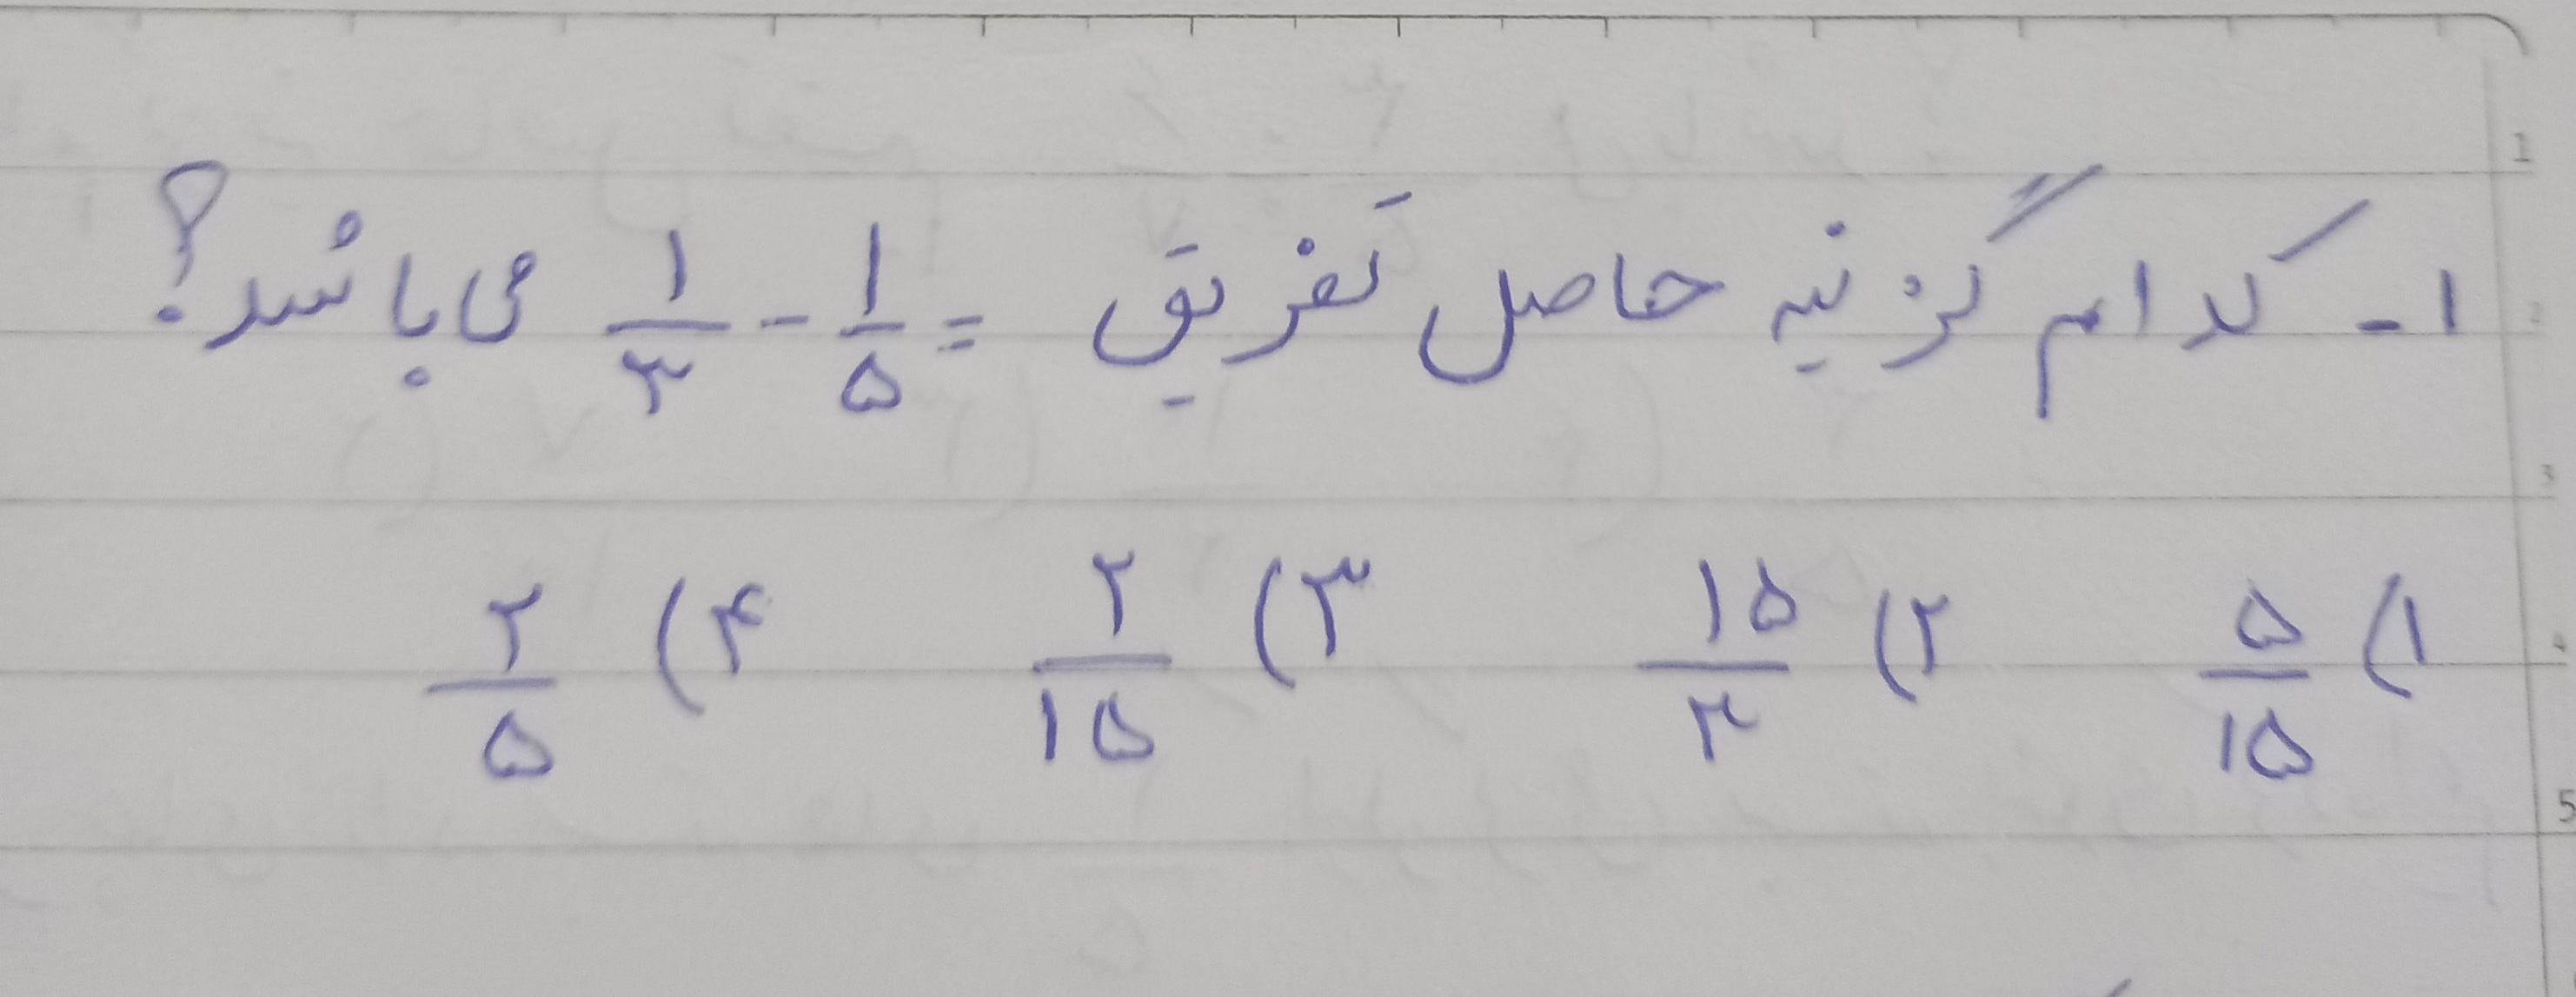 ۱- کدام گزینه حاصل تفریق = ۱/۵ - ۱/۳ می باشد؟
۱) ۵/۱۵ ۲) ۱۵/۳ ۳) ۲/۱۵ ۴) ۲/۵
1
2
3
4
5